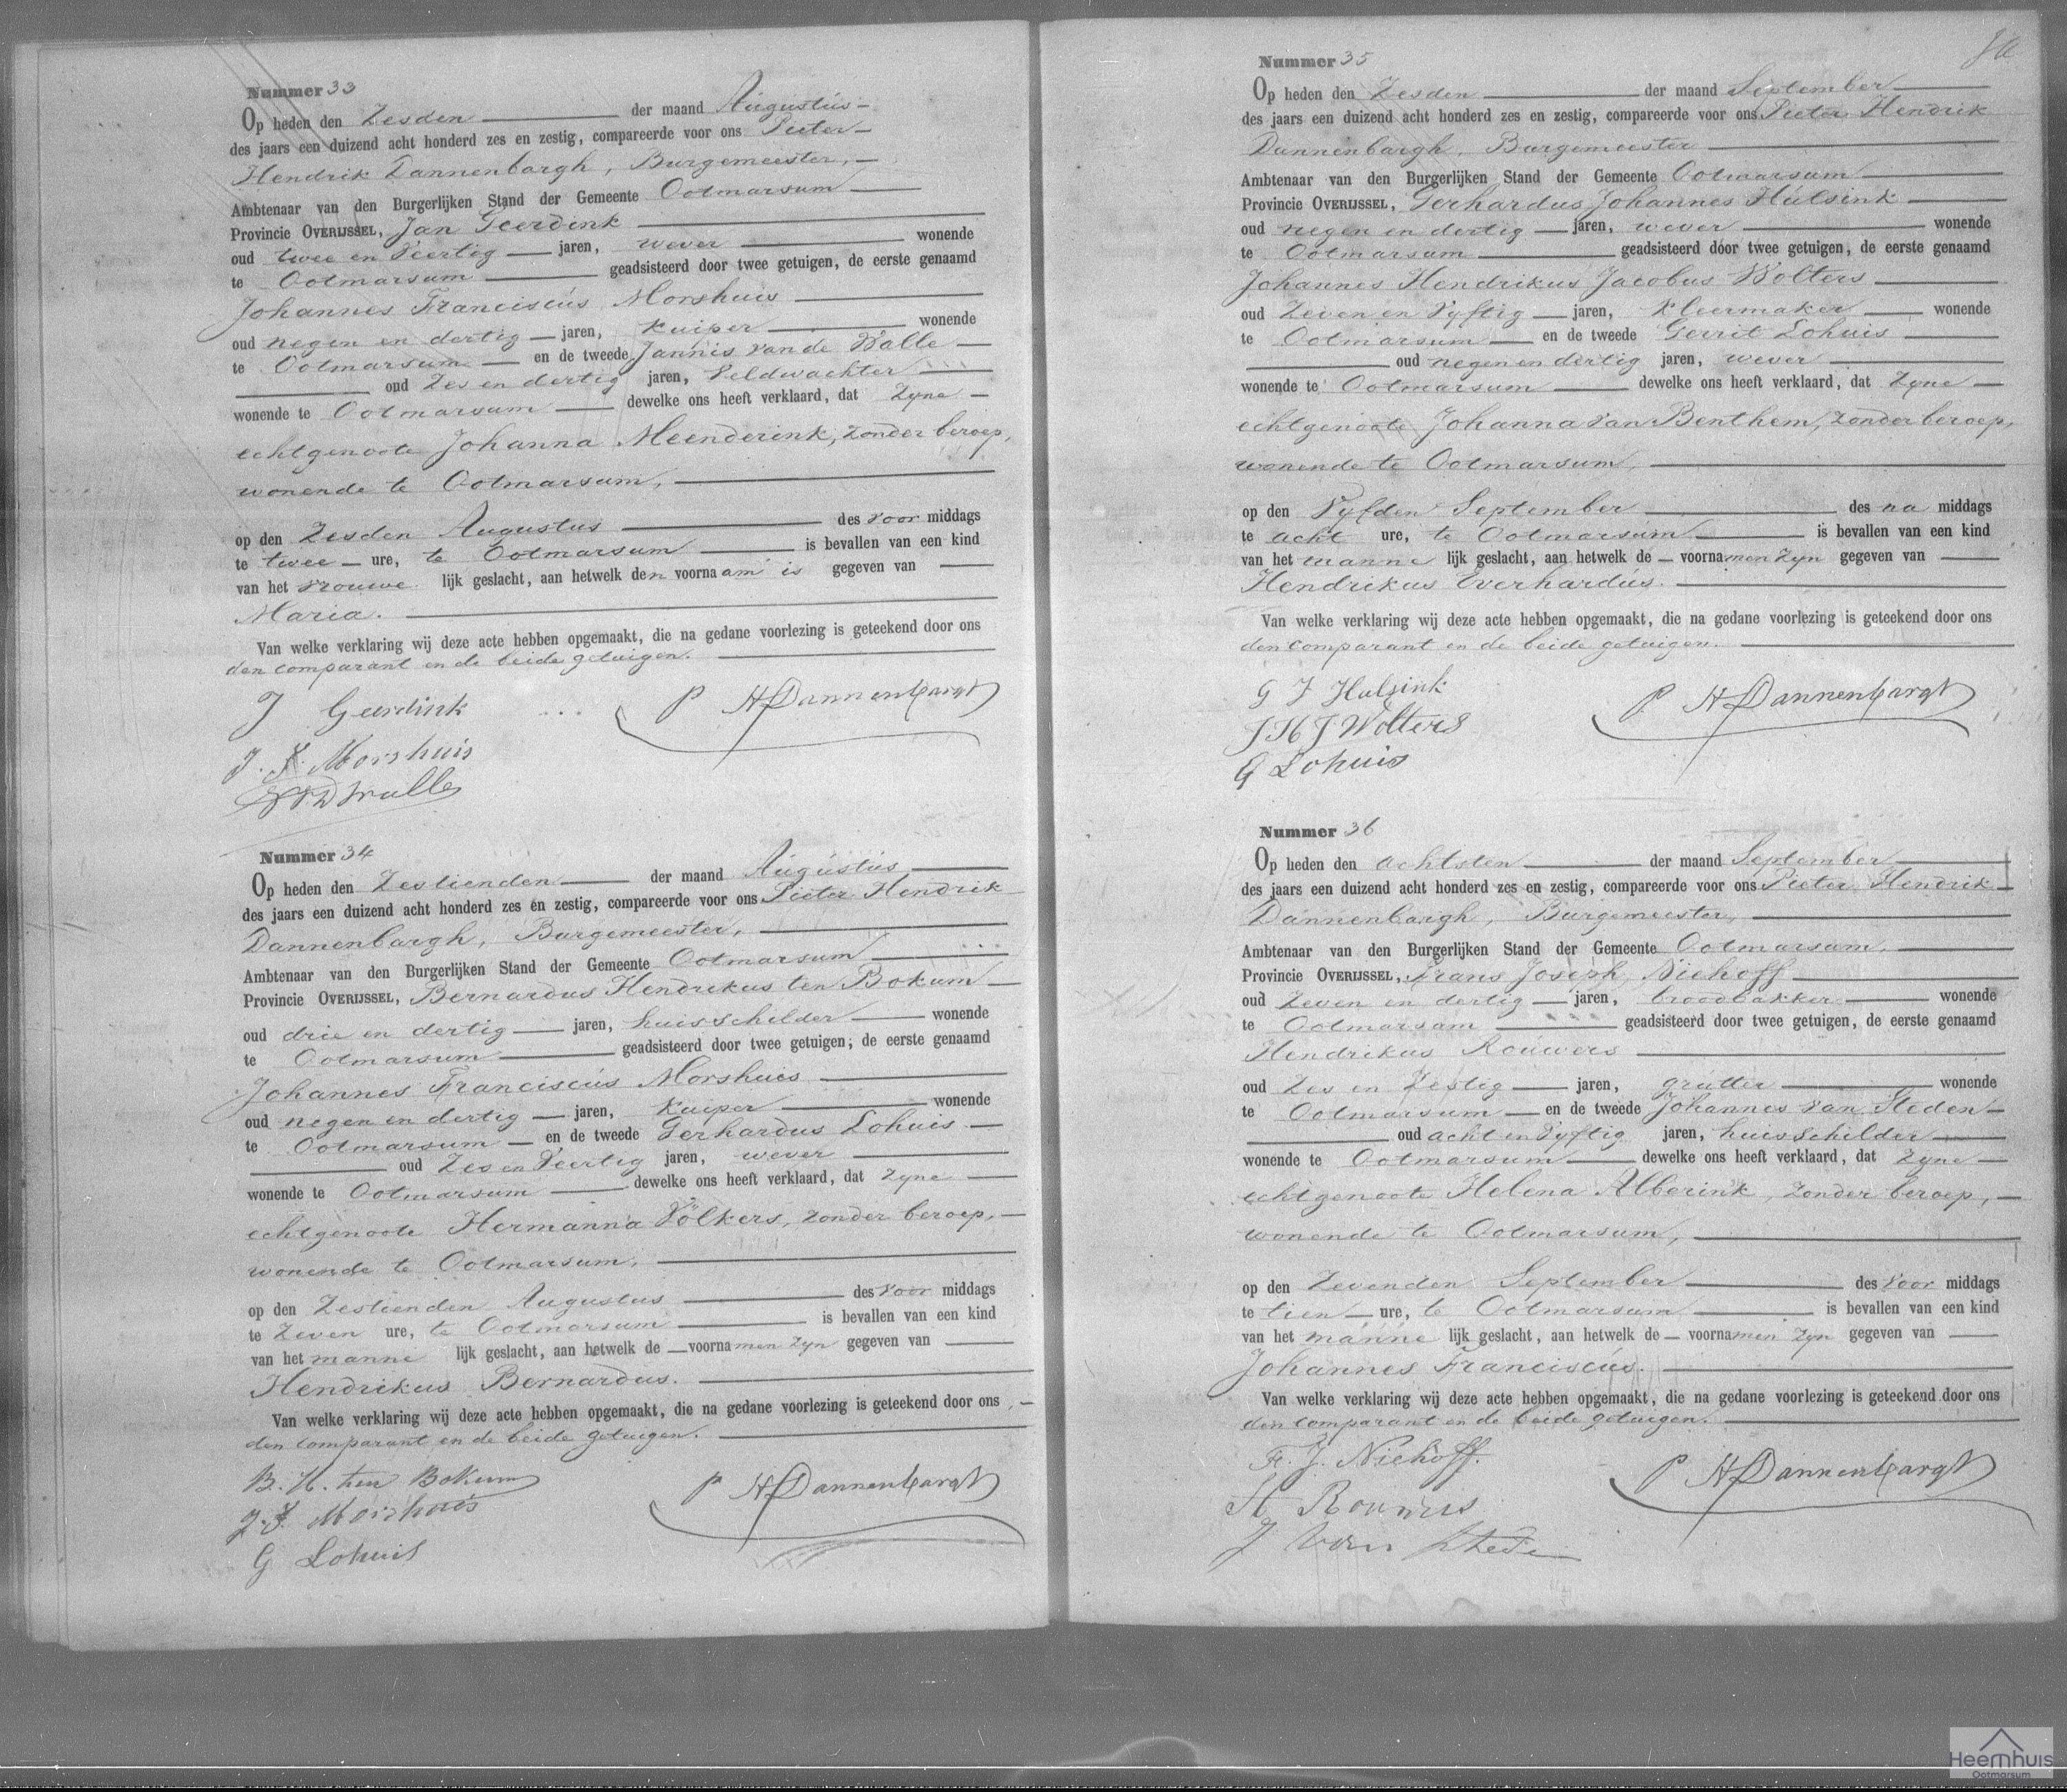 Nummer 33
Op heden den Zesden der maand Augustus
des jaars een duizend acht honderd zes en zestig, compareerde voor ons Pieter
Hendrik Dannenbargh, Burgemeester,
Ambtenaar van den Burgerlijken Stand der Gemeente Ootmarsum
Provincie OVERIJSSEL, Jan Geerdink
oud twee en Veertig jaren, wever wonende
te Ootmarsum geadsisteerd door twee getuigen, de eerste genaamd
Johannes Franciscus Morshuis
oud negen en dertig jaren, Kuiper wonende
te Ootmarsum en de tweede Jannis van de Walle
oud Zes en dertig jaren, Veldwachter
wonende te Ootmarsum dewelke ons heeft verklaard, dat Zyne
echtgenoote Johanna Meenderink, zonder beroep,
wonende te Ootmarsum,
op den Zesden Augustus des Voor middags
te twee ure, te Ootmarsum is bevallen van een kind
van het vrouwe lijk geslacht, aan hetwelk den voornaam is gegeven van
Maria.
Van welke verklaring wij deze acte hebben opgemaakt, die na gedane voorlezing is geteekend door ons
den comparant en de beide getuigen.
J Geerdink P H Dannenbargh
J. F. Morshuis
Nummer 34
Op heden den Zestienden der maand Augustus
des jaars een duizend acht honderd zes en zestig, compareerde voor ons Pieter Hendrik
Dannenbargh, Burgemeester,
Ambtenaar van den Burgerlijken Stand der Gemeente Ootmarsum
Provincie OVERIJSSEL, Bernardus Hendrikus ten Bokum
oud drie en dertig jaren, huisschilder wonende
te Ootmarsum geadsisteerd door twee getuigen; de eerste genaamd
Johannes Franciscus Morshuis
oud negen en dertig jaren, Kuiper wonende
te Ootmarsum en de tweede Gerhardus Lohuis
oud Zes en Veertig jaren, wever
wonende te Ootmarsum dewelke ons heeft verklaard, dat Zyne
echtgenoote Hermanna Völkers, zonder beroep,
wonende te Ootmarsum,
op den Zestienden Augustus des Voor middags
te Zeven ure, te Ootmarsum is bevallen van een kind
van het manne lijk geslacht, aan hetwelk de voornamen zyn gegeven van
Hendrikus Bernardus.
Van welke verklaring wij deze acte hebben opgemaakt, die na gedane voorlezing is geteekend door ons
den comparant en de beide getuigen.
B. H. ten Bokum P H Dannenbargh
J. F. Morshuis
G Lohuis
Nummer 35
Op heden den Zesden der maand September
des jaars een duizend acht honderd zes en zestig, compareerde voor ons Pieter Hendrik
Dannenbargh, Burgemeester
Ambtenaar van den Burgerlijken Stand der Gemeente Ootmarsum
Provincie OVERIJSSEL, Gerhardus Johannes Hulsink
oud negen en dertig jaren, wever wonende
te Ootmarsum geadsisteerd door twee getuigen, de eerste genaamd
Johannes Hendrikus Jacobus Wolters
oud Zeven en Vyftig jaren, Kleermaker wonende
te Ootmarsum en de tweede Gerrit Lohuis
oud negen en dertig jaren, wever
wonende te Ootmarsum dewelke ons heeft verklaard, dat Zyne
echtgenoote Johanna van Benthem, zonder beroep,
wonende te Ootmarsum,
op den Vyfden September des na middags
te acht ure, te Ootmarsum is bevallen van een kind
van het manne lijk geslacht, aan hetwelk de voornamen zyn gegeven van
Hendrikus Everhardus.
Van welke verklaring wij deze acte hebben opgemaakt, die na gedane voorlezing is geteekend door ons
den comparant en de beide getuigen.
G J Hulsink P H Dannenbargh
J H J Wolters
G Lohuis
Nummer 36
Op heden den achtsten der maand September
des jaars een duizend acht honderd zes en zestig, compareerde voor ons Pieter Hendrik
Dannenbargh, Burgemeester,
Ambtenaar van den Burgerlijken Stand der Gemeente Ootmarsum,
Provincie OVERIJSSEL, Frans Joseph Niehoff
oud Zeven en dertig jaren, broodbakker wonende
te Ootmarsum geadsisteerd door twee getuigen, de eerste genaamd
Hendrikus Rouwers
oud Zes en Zestig jaren, grutter wonende
te Ootmarsum en de tweede Johannes van Steden
oud acht en Vyftig jaren, huisschilder
wonende te Ootmarsum dewelke ons heeft verklaard, dat Zyne
echtgenoote Helena Alberink, zonder beroep,
wonende te Ootmarsum,
op den Zevenden September des Voor middags
te tien ure, te Ootmarsum is bevallen van een kind
van het manne lijk geslacht, aan hetwelk de voornamen zyn gegeven van
Johannes Franciscus.
Van welke verklaring wij deze acte hebben opgemaakt, die na gedane voorlezing is geteekend door ons
den comparant en de beide getuigen.
F. J. Niehoff. P H Dannenbargh
H Rouwers
J van
Heemhuis
Ootmarsum